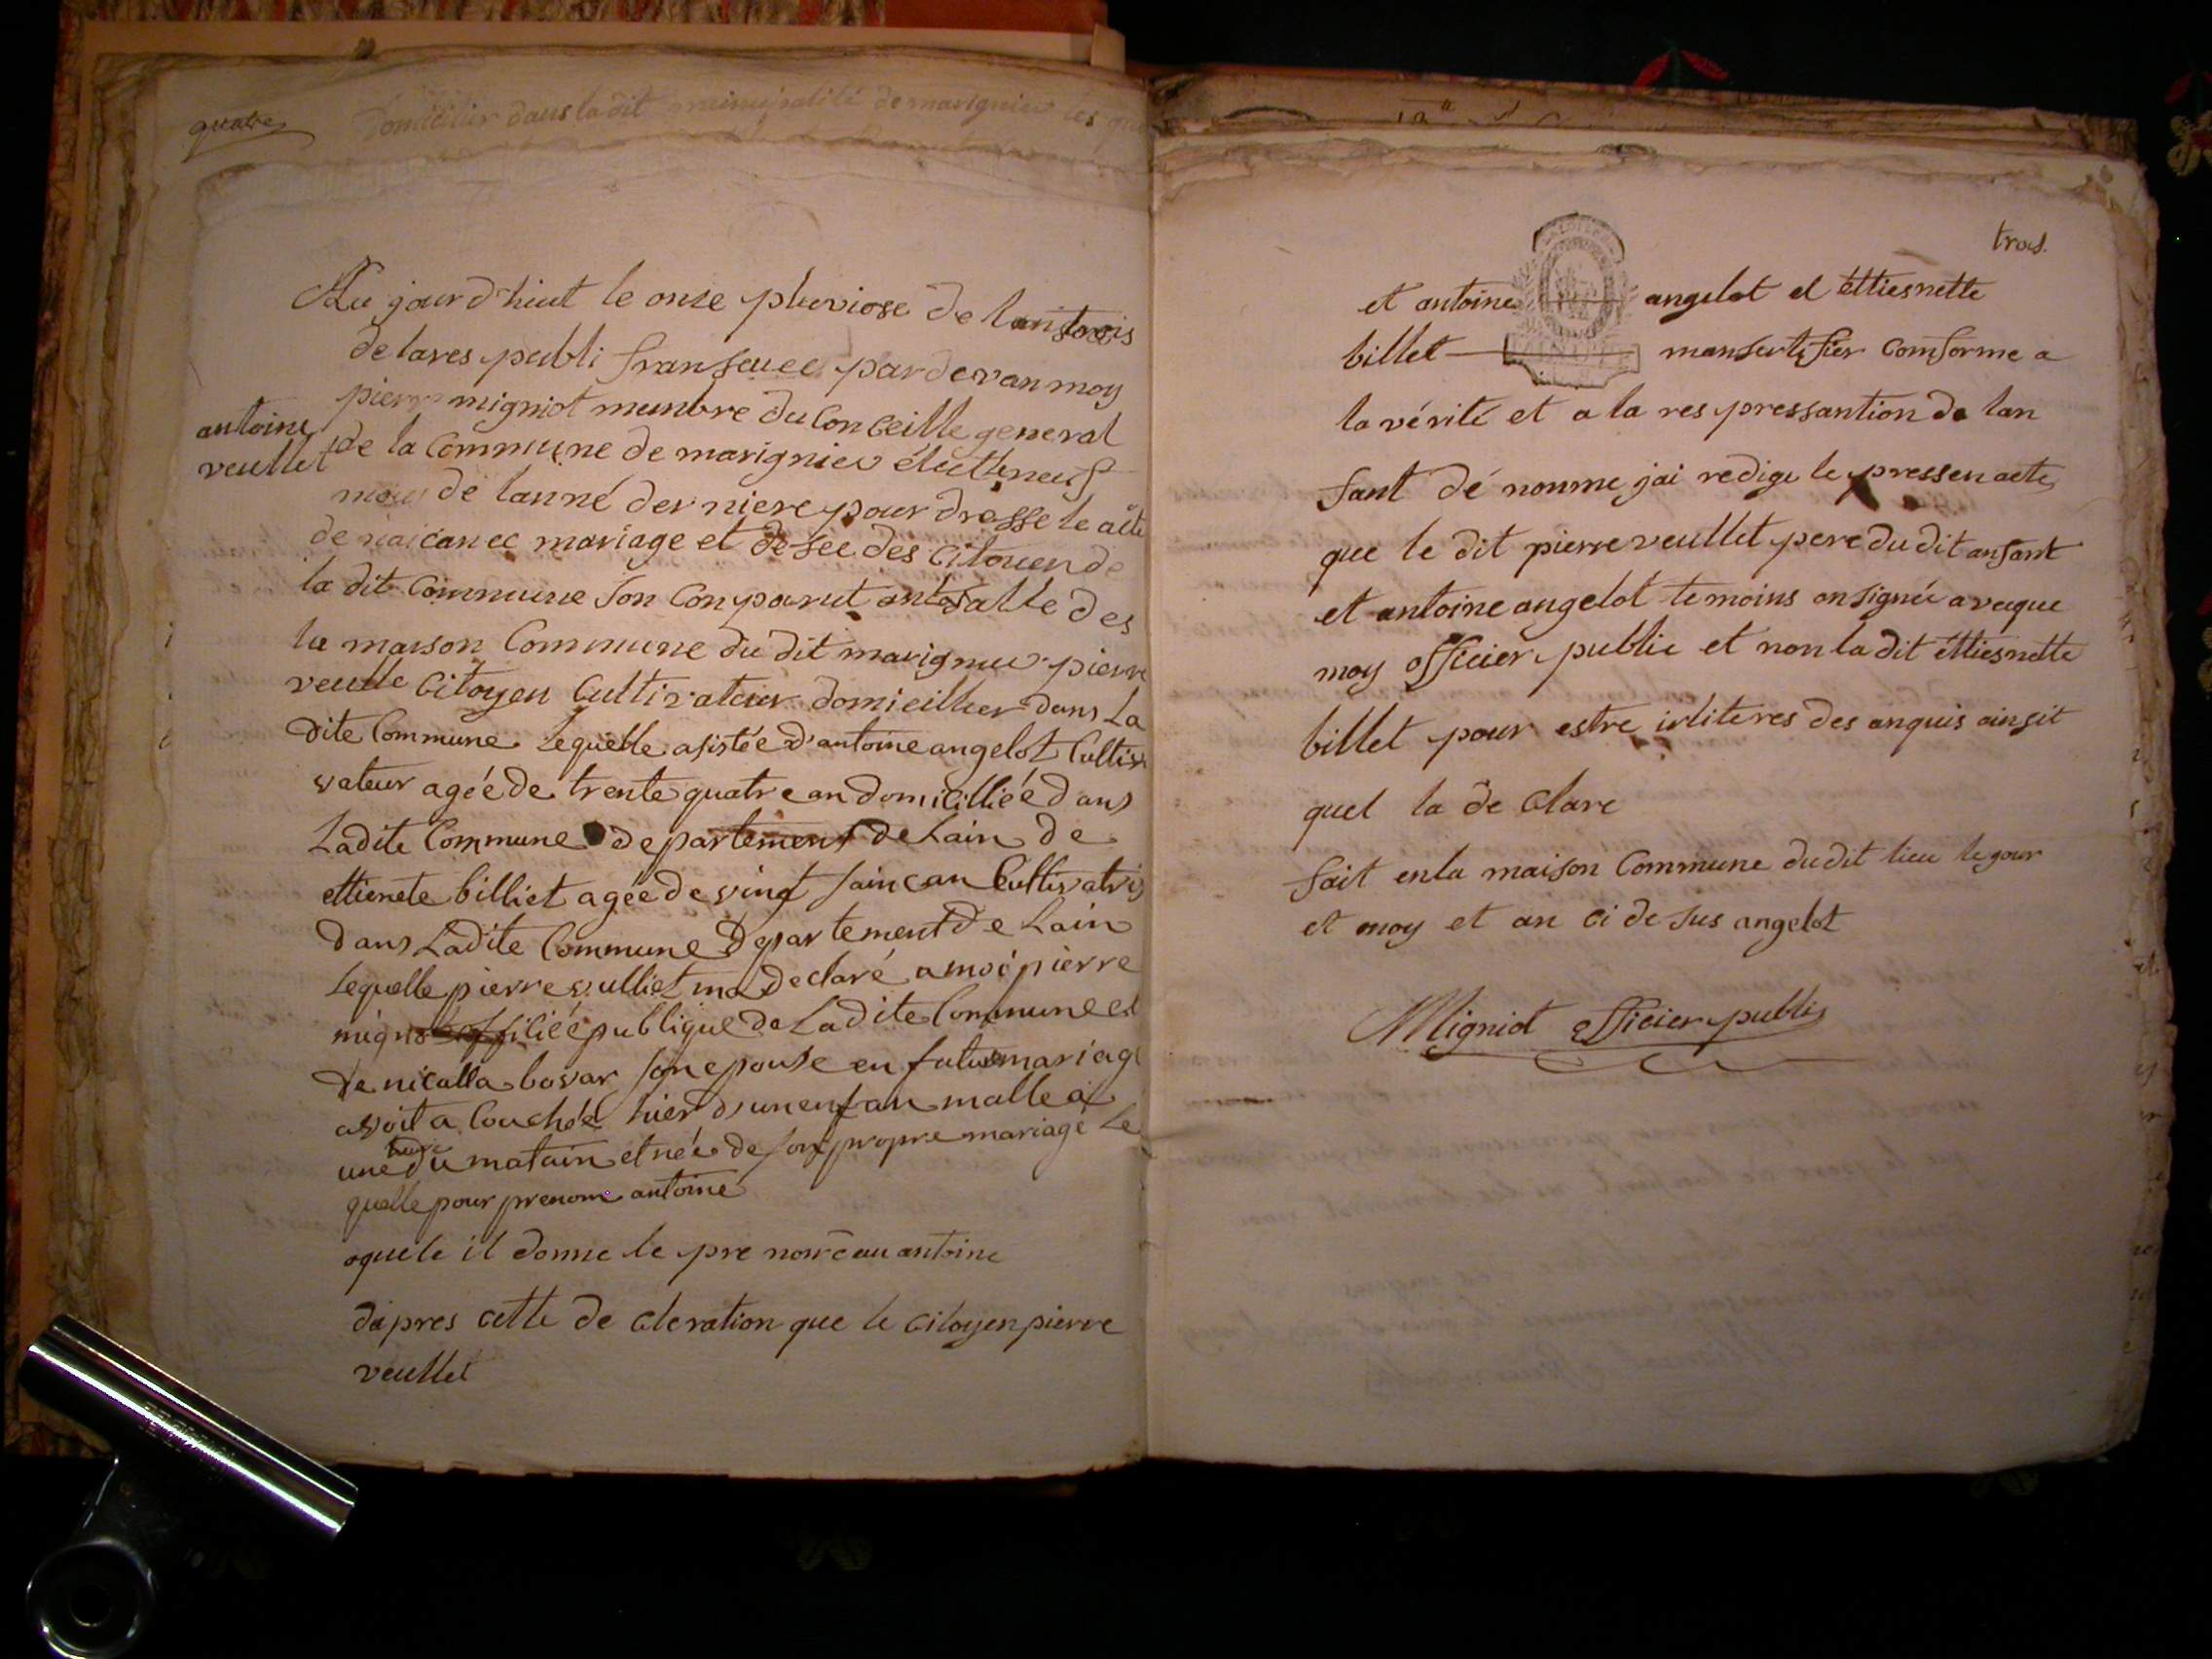 quatre
domicilier dans la dit municipalité de marignieu les
Au jourd'hiut le onze pluviose de l'an trois
de la res publi franseuee par devan moy
pierre migniot munbre du Conceille general
antoine
veullet
de la Commune de marignieu élut le neuf
de lanné der niere pour dresse le acte
de naicance mariage et desee des Citouen de
la dit Commune son Conparut salle des
la maison Commune du dit marignieu pierre
veulle Citoyen Cultivateur domicilher dans La
dite Commune Lequelle asistée d'antoine angelot Culti
vateur agée de trente quatre an domicilliée dans
Ladite Commune departement de Lain de
ettienete billiet agée de vingt sainc an Cultivatri
dans Ladite Commune Departement de Lain
Lequelle pierre vulliet ma Declaré a moi pierre
migniot officiée publique de Ladite Commune et
de nicolla bovar son epouse en mariage
avoit a Couchée hier d'un enfan malle a
une du matain et née de son propre mariage Le
quelle pour prenom antoine
oquele il donne le pre nom antoine
dapres cette de cleration que le citoyen pierre
veullet
trois.
et antoine angelot et éttiesnette
billet mansertifier Comforme a
la vérité et a la res pressantion de lan
fant dé nomme jai redige le pressen acte
que le dit pierre veullet pere du dit anfant
et antoine angelot temoins on signée aveque
moy officier public et non la dit éttiesnette
billet pour estre irliteres des anquis ainsit
quel la de Clare
fait en la maison Commune du dit lieu le jour
et moy et an ci de sus angelot
Migniot officier publis